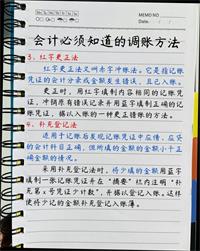 MEMO NO.
Date / /
会计必须知道的调账方法
3、红字更正法
红字更正法又叫赤字冲账法。它是指记账
凭证的会计分录或金额发生错误,且已入账。
更正时,用红字填制内容相同的记账凭
证,冲销原有错误记录并用蓝字填制正确的记
账凭证,据以入账的一种更正错账的方法。
4、补充登记法
适用于记账后发现记账凭证中应借、应贷
的会计科目正确,但所填的金额的金额小于正
确金额的情况。
采用补充登记法时,将少填的金额用蓝字
填制一张记账凭证并在“摘要”栏内注明“补
充第×号凭证少计数”,并据以登记入账。这样
便将少记的金额补充登记入账簿。